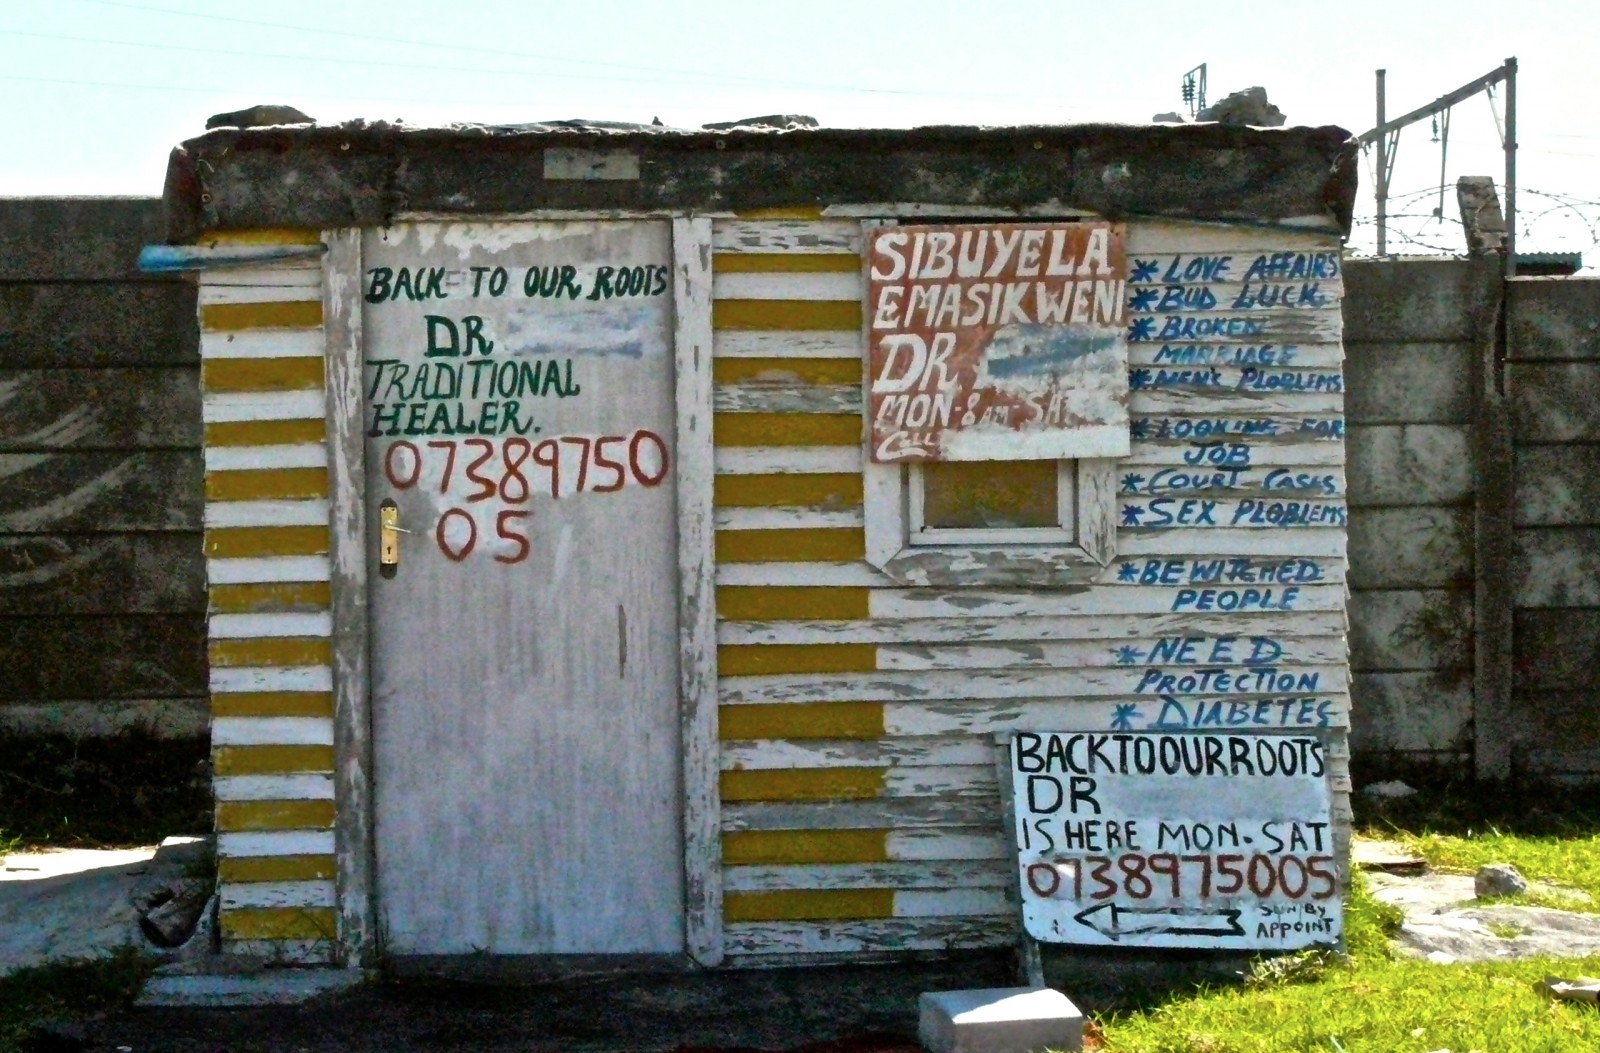 BACK TO OUR ROOTS
DR
TRADITIONAL
HEALER.
07389750
05
SIBUYELA
EMASIKWENI
DR
MON-8AM-SA
CALL
* LOVE AFFAIRS
* BUD LUCK
* BROKEN
MARRIAGE
* MEN'S PLOBLEMS
* LOOKING FOR
JOB
* COURT CASES
* SEX PLOBLEMS
* BEWITCHED
PEOPLE
* NEED
PROTECTION
* DIABETES
BACKTOOURROOTS
DR
IS HERE MON. SAT
0738975005
SUN BY
APPOINT